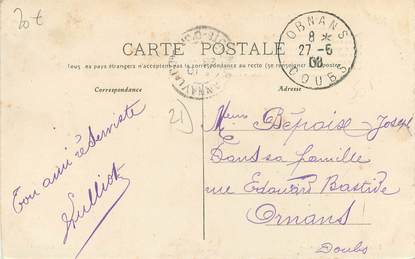 20€
CARTE POSTALE
Tous les pays étrangers n'acceptent pas la correspondance au recto (se renseigner
Correspondance
Adresse
ORNANS
8 *
27-6
DOUBS
21
Ton ami réserviste
Mons Bépoix Joseph
Dans sa famille
rue Edouard Bastide
Ornans
Doubs